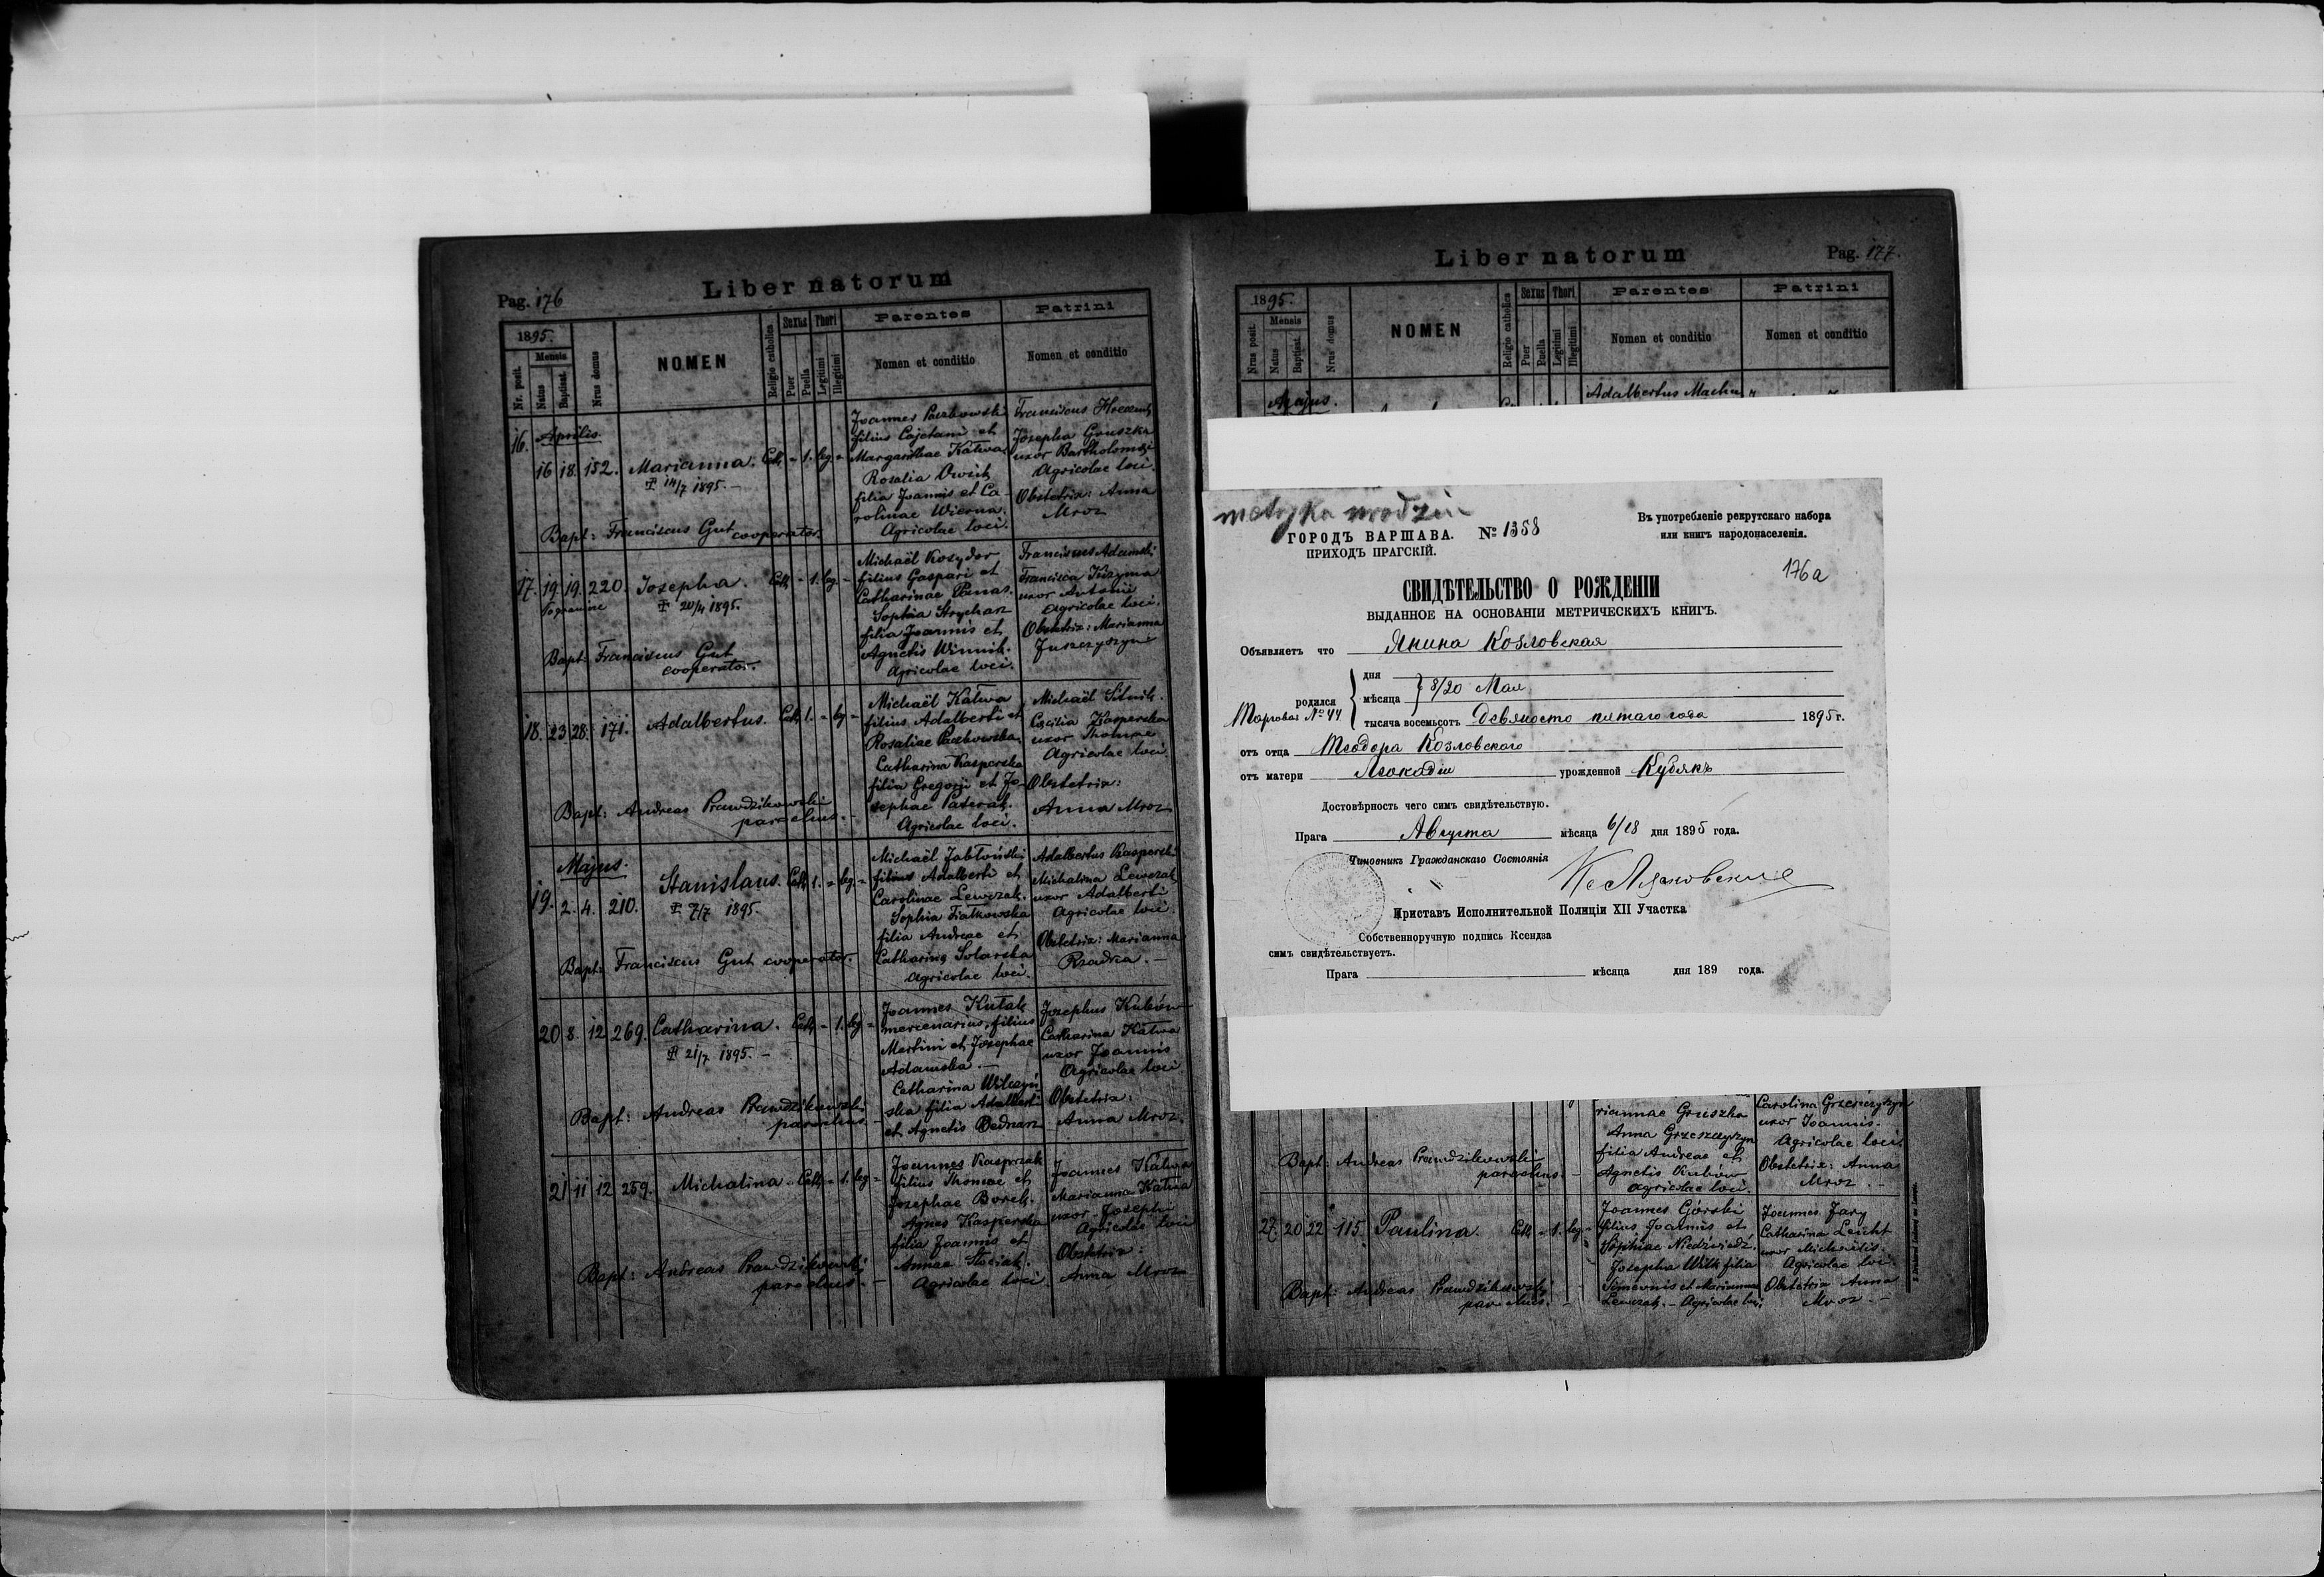 Pag. 176
Liber natorum
1895.
Nr. posit.
Mensis
Natus
Baptisat.
Nrus domus
NOMEN
Religio catholica
Sexus
Puer
Puella
Thori
Legitimi
Illegitimi
Parentes
Nomen et conditio
Patrini
Nomen et conditio
16.
Aprilis.
16 18. 152. Marianna. Cath. - 1. leg. -
14/7 1895. -
Joannes Paczkowski
filius Cajetani et
Margarithae Katwa.
Rosalia
filia Joannis et Ca-
rolinae Wierna.
Agricolae loci.
Franciscus
Josepha Gruszka
uxor Bartholomaei
Agricolae loci.
Obstetrix: Anna
Mroz
Bapt: Franciscus Gut cooperator.
17. 19. 19. 220. Josepha. Cath. - 1. leg. -
20/4 1895.
Michaël Kozydor
filius Gaspari et
Catharinae Panas.
Sophia Strycharz
filia Joannis et
Agnetis Winnik.
Agricolae loci.
Franciscus Adamski
Francisca Kuzyma
uxor Antonii
Agricolae loci.
Obstetrix: Marianna
Juszczyszyn
Bapt: Franciscus Gut
cooperator.
18. 23 28. 171. Adalbertus. Cath. 1. - leg -
Michaël Katwa
filius Adalberti et
Rosaliae Paczkowska.
Catharina Kasperska
filia Gregorji et Jo-
sephae Paterak.
Agricolae loci.
Michaël Sitnik.
Cecilia Kasperska
uxor Thomae
Agricolae loci.
Obstetrix:
Anna Mroz
Bapt: Andreas Prawdzikowski
parochus. -
Majus.
19. 2. 4. 210. Stanislaus. Cath. 1. - leg. -
7/7 1895.
Michaël Jabłoński
filius Adalberti et
Carolinae Lewczak.
Sophia Fiałkowska
filia Andreae et
Catharina Solarska
Agricolae loci.
Adalbertus Kasperski
Michalina Lewczak
uxor Adalberti
Agricolae loci.
Obstetrix: Marianna
Rzadca. -
Bapt: Franciscus Gut cooperator.
20 8. 12 269. Catharina. Cath. - 1. leg -
21/7 1895. -
Joannes Kutak
mercenarius, filius
Martini et Josephae
Adamska. -
Catharina Wilczyń-
ska filia Adalberti
et Agnetis Bednarz
Josephus Kubów
Catharina Katwa
uxor Joannis
Agricolae loci.
Obstetrix:
Anna Mroz.
Bapt: Andreas Prawdzikowski
parochus. -
21 11 12 259. Michalina. Cath. - 1. leg -
Joannes Kasprzak
filius Thomae et
Josephae Borek.
Agnes Kasperska
filia Joannis et
Annae Stociak.
Agricolae loci.
Joannes Katwa
Marianna Katwa
uxor Josephi
Agricolae loci
Obstetrix:
Anna Mroz
Bapt: Andreas Prawdzikowski
parochus. -
Liber natorum
Pag. 177.
1895.
Nrus posit.
Mensis
Natus
Baptisat.
Nrus domus
NOMEN
Religio catholica
Sexus
Puer
Puella
Thori
Legitimi
Illegitimi
Parentes
Nomen et conditio
Patrini
Nomen et conditio
Majus.
Adalbertus
metryka urodzin
ГОРОДЪ ВАРШАВА. № 1358
ПРИХОДЪ ПРАГСКІЙ.
Въ употребленіе рекрутскаго набора
или книгъ народонаселенія.
176a
СВИДѢТЕЛЬСТВО О РОЖДЕНІИ
ВЫДАННОЕ НА ОСНОВАНІИ МЕТРИЧЕСКИХЪ КНИГЪ.
Объявляетъ что Янина Козловская
родился
дня
мѣсяца 8/20 Мая
Торговая № 44
тысяча восемьсотъ девяносто пятаго года 1895 г.
отъ отца Теодора Козловскаго
отъ матери Леокадіи урожденной Кубякъ
Достовѣрность чего симъ свидѣтельствую.
Прага Августа мѣсяца 6/18 дня 1895 года.
Чиновникъ Гражданскаго Состоянія
Приставъ Исполнительной Полиціи XII Участка
Собственноручную подпись Ксендза
симъ свидѣтельствуетъ.
Прага мѣсяца дня 189 года.
riannae Gruszka
Anna Grzeszczyszyn
filia Andreae et
Agnetis Kubów
Agricolae loci.
Carolina Grzeszczyszyn
uxor Joannis.
Agricolae loci.
Obstetrix: Anna
Mroz. -
Bapt: Andreas Prawdzikowski
parochus. -
27. 20 22 115. Paulina. Cath. - 1. leg -
Joannes Górski
filius Joannis et
Sophiae Niedźwiedź.
Josepha Wilk filia
Simeonis et Marianna
Lewczak. - Agricolae loci
Joannes Jary
Catharina Leicht
uxor Michaëlis.
Agricolae loci.
Obstetrix Anna
Mroz. -
Bapt: Andreas Prawdzikowski
parochus. -